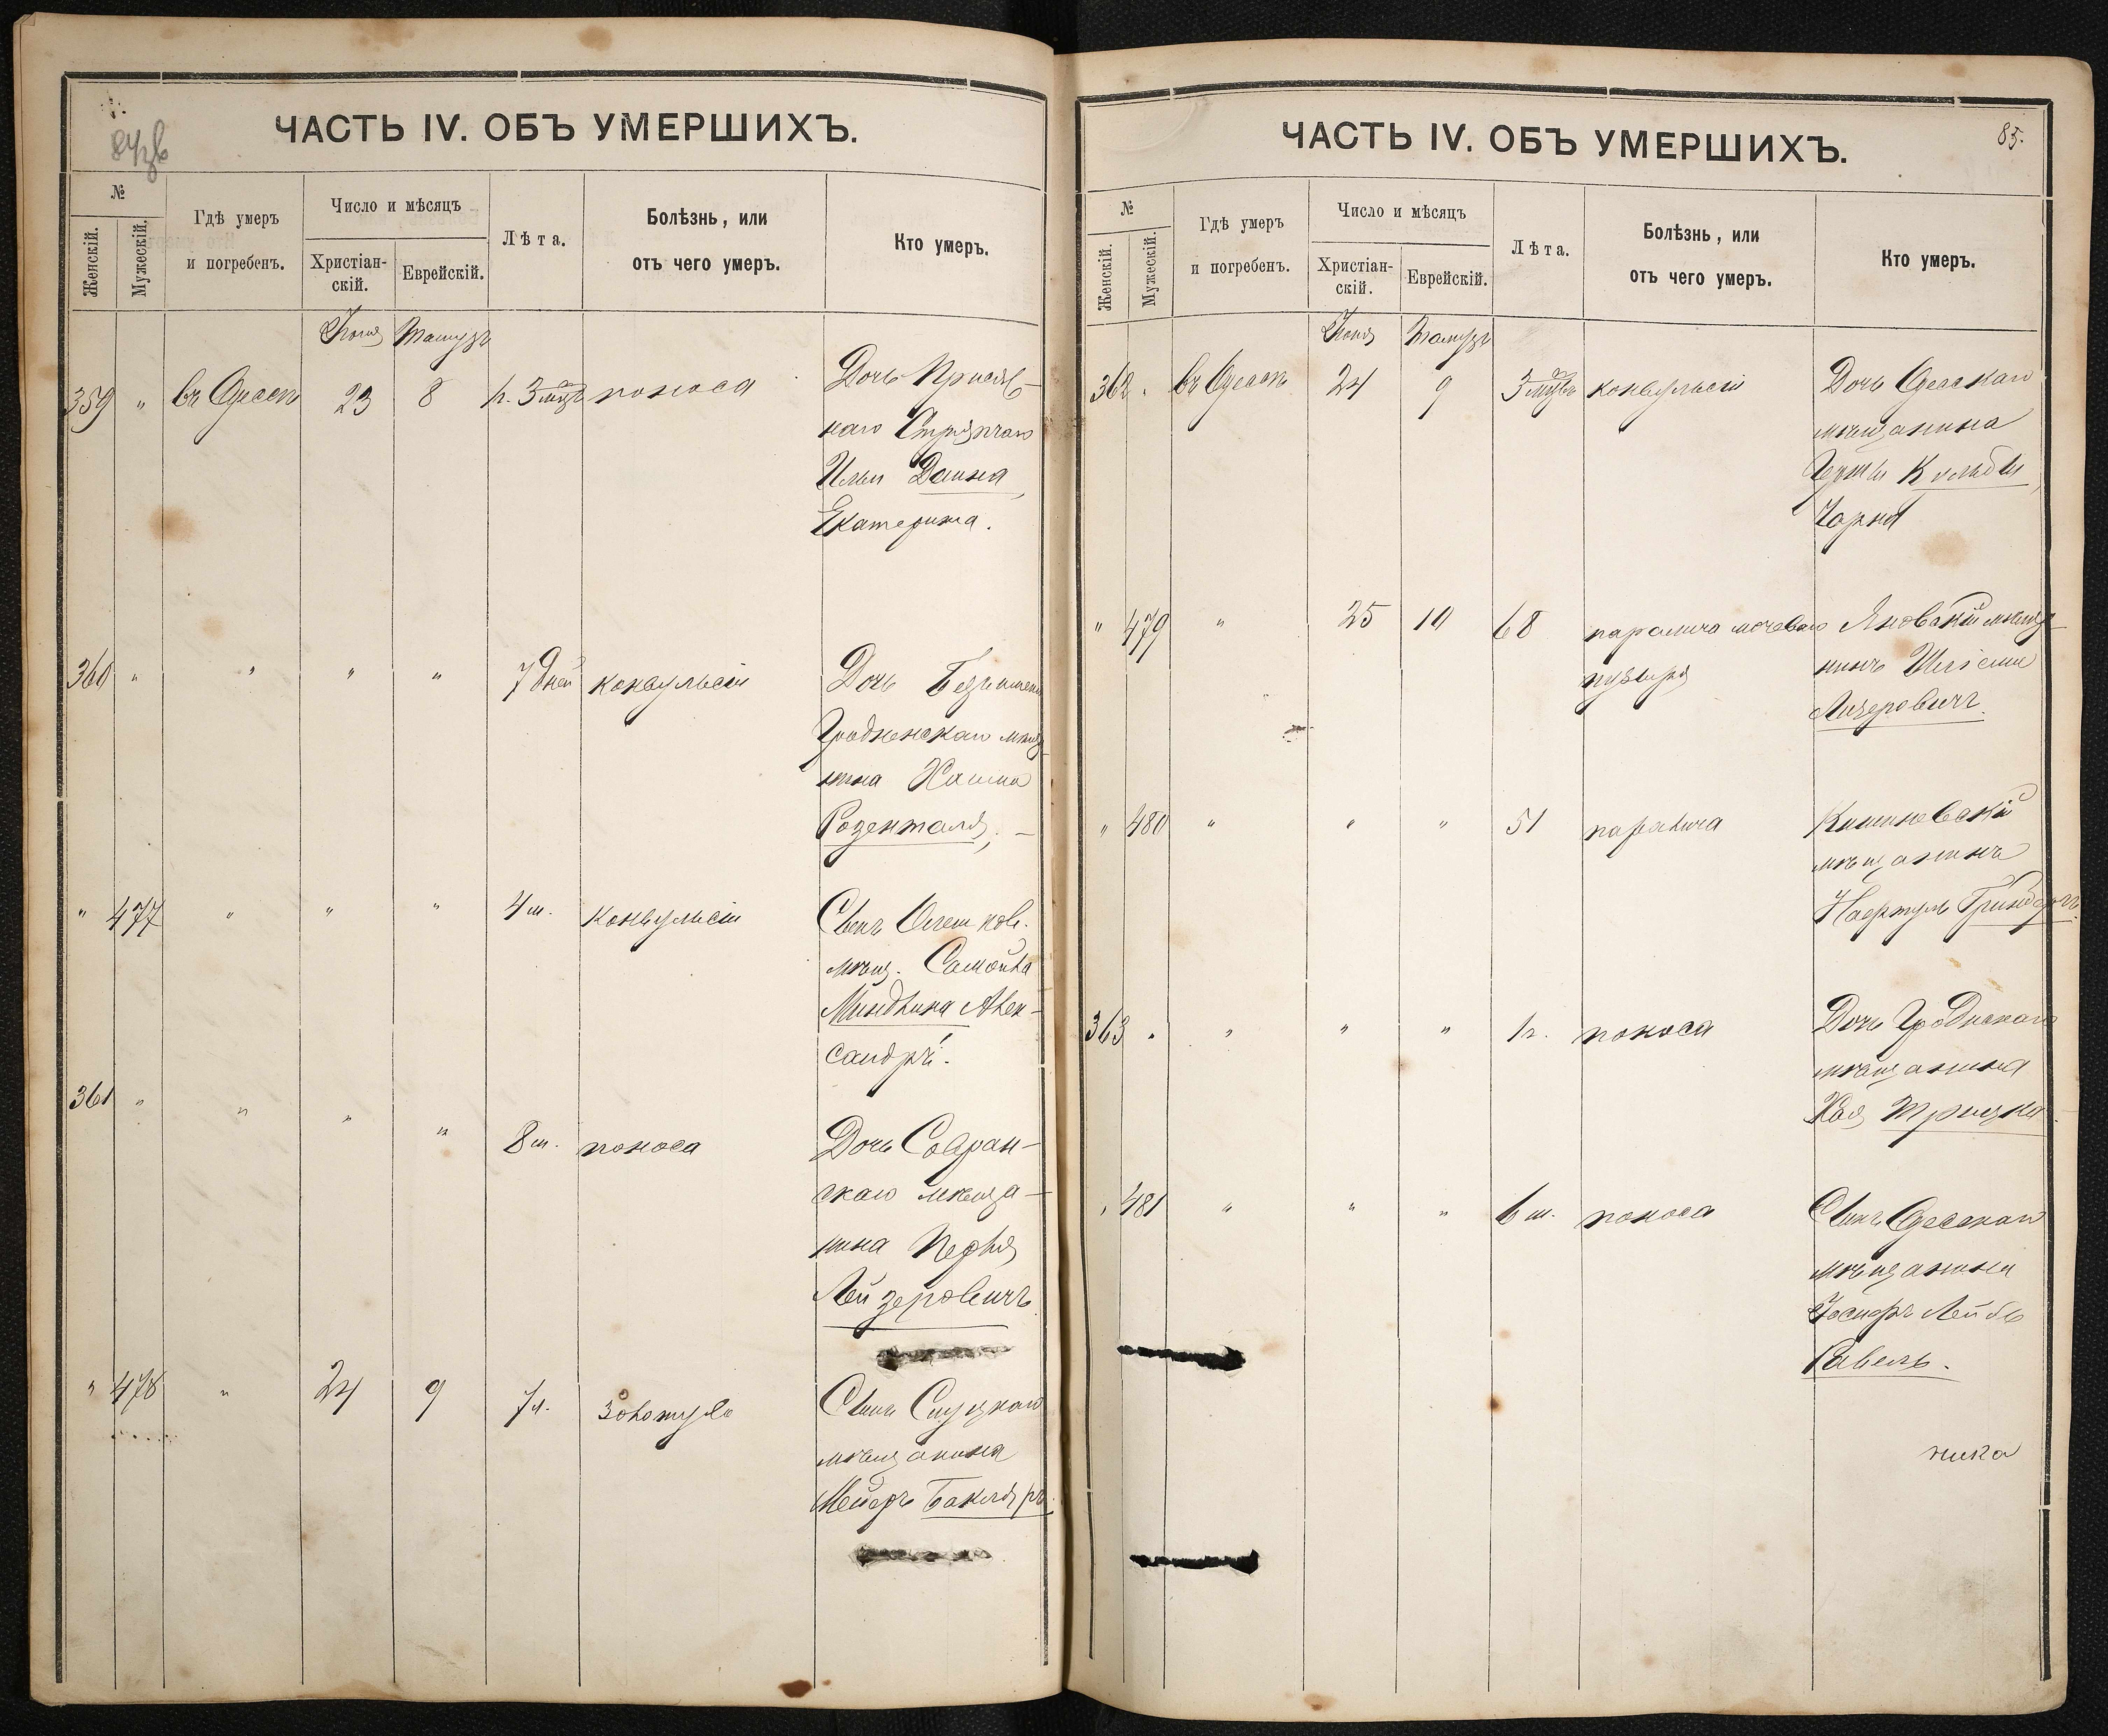 84 об
ЧАСТЬ IV. ОБЪ УМЕРШИХЪ.
№
Женскій.
Мужескій.
Гдѣ умеръ
и погребенъ.
Число и мѣсяцъ
Христіан-
скій.
Еврейскій.
Лѣта.
Болѣзнь, или
отъ чего умеръ.
Кто умеръ.
Іюня Тамузъ
359 " въ Одессѣ 23 8 1г. 3 мѣс поноса Дочь Присяж-
наго Стряпчаго
Ильи Дайна,
Екатерина.
360 " " " " 7 дней конвульсіи Дочь
Гродненскаго мѣща-
нина Хаима
Розенталя; —
" 477 " " " 4 м. конвульсіи Сынъ Олешков.
мѣщ. Самойла
Миндлина Алек-
сандръ.
361 " " " " 8 м. поноса Дочь Савран-
скаго мѣща-
нина Перля
Лейзеровичъ
" 478 " 24 9 7 л. золотуха Сынъ Слуцкаго
мѣщанина
Мейеръ Бакляръ
85.
ЧАСТЬ IV. ОБЪ УМЕРШИХЪ.
№
Женскій.
Мужескій.
Гдѣ умеръ
и погребенъ.
Число и мѣсяцъ
Христіан-
скій.
Еврейскій.
Лѣта.
Болѣзнь, или
отъ чего умеръ.
Кто умеръ.
Іюня Тамузъ
362 " въ Одессѣ 24 9 3 мѣс конвульсіи Дочь Одесскаго
мѣщанина
Герша
Чарна
" 479 " 25 10 68 паралича мочеваго Яновскій мѣща-
пузыря нинъ
Лизеровичъ.
" 480 " " " 51 паралича Кишиневскій
мѣщанинъ
363 " " " " 1г. поноса Дочь Гродскаго
мѣщанина
Хая
" 481 " " " 6 м. поноса Сынъ Одесскаго
мѣщанина
Іосифъ Лейбъ
ника